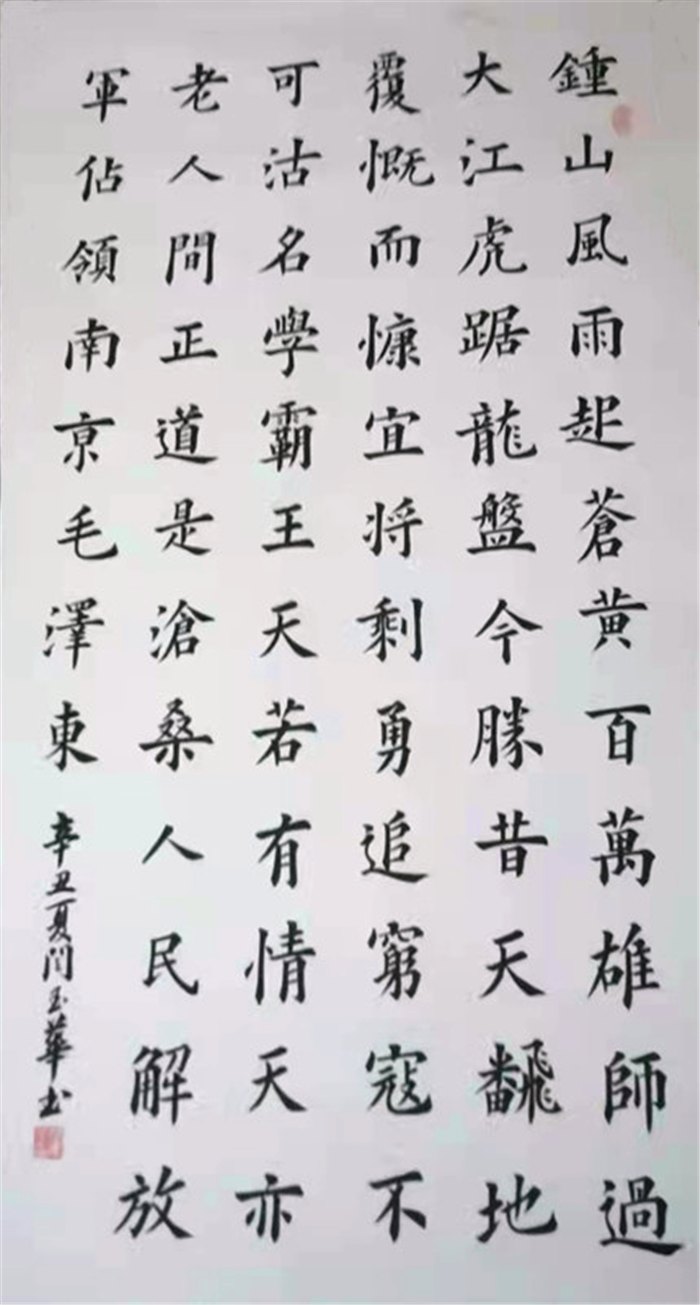 鍾山風雨起蒼黃百萬雄師過
大江虎踞龍盤今勝昔天飜地
覆慨而慷宜将剩勇追窮寇不
可沽名學霸王天若有情天亦
老人間正道是滄桑人民解放
軍佔領南亰毛澤東
辛丑夏闫玉華书